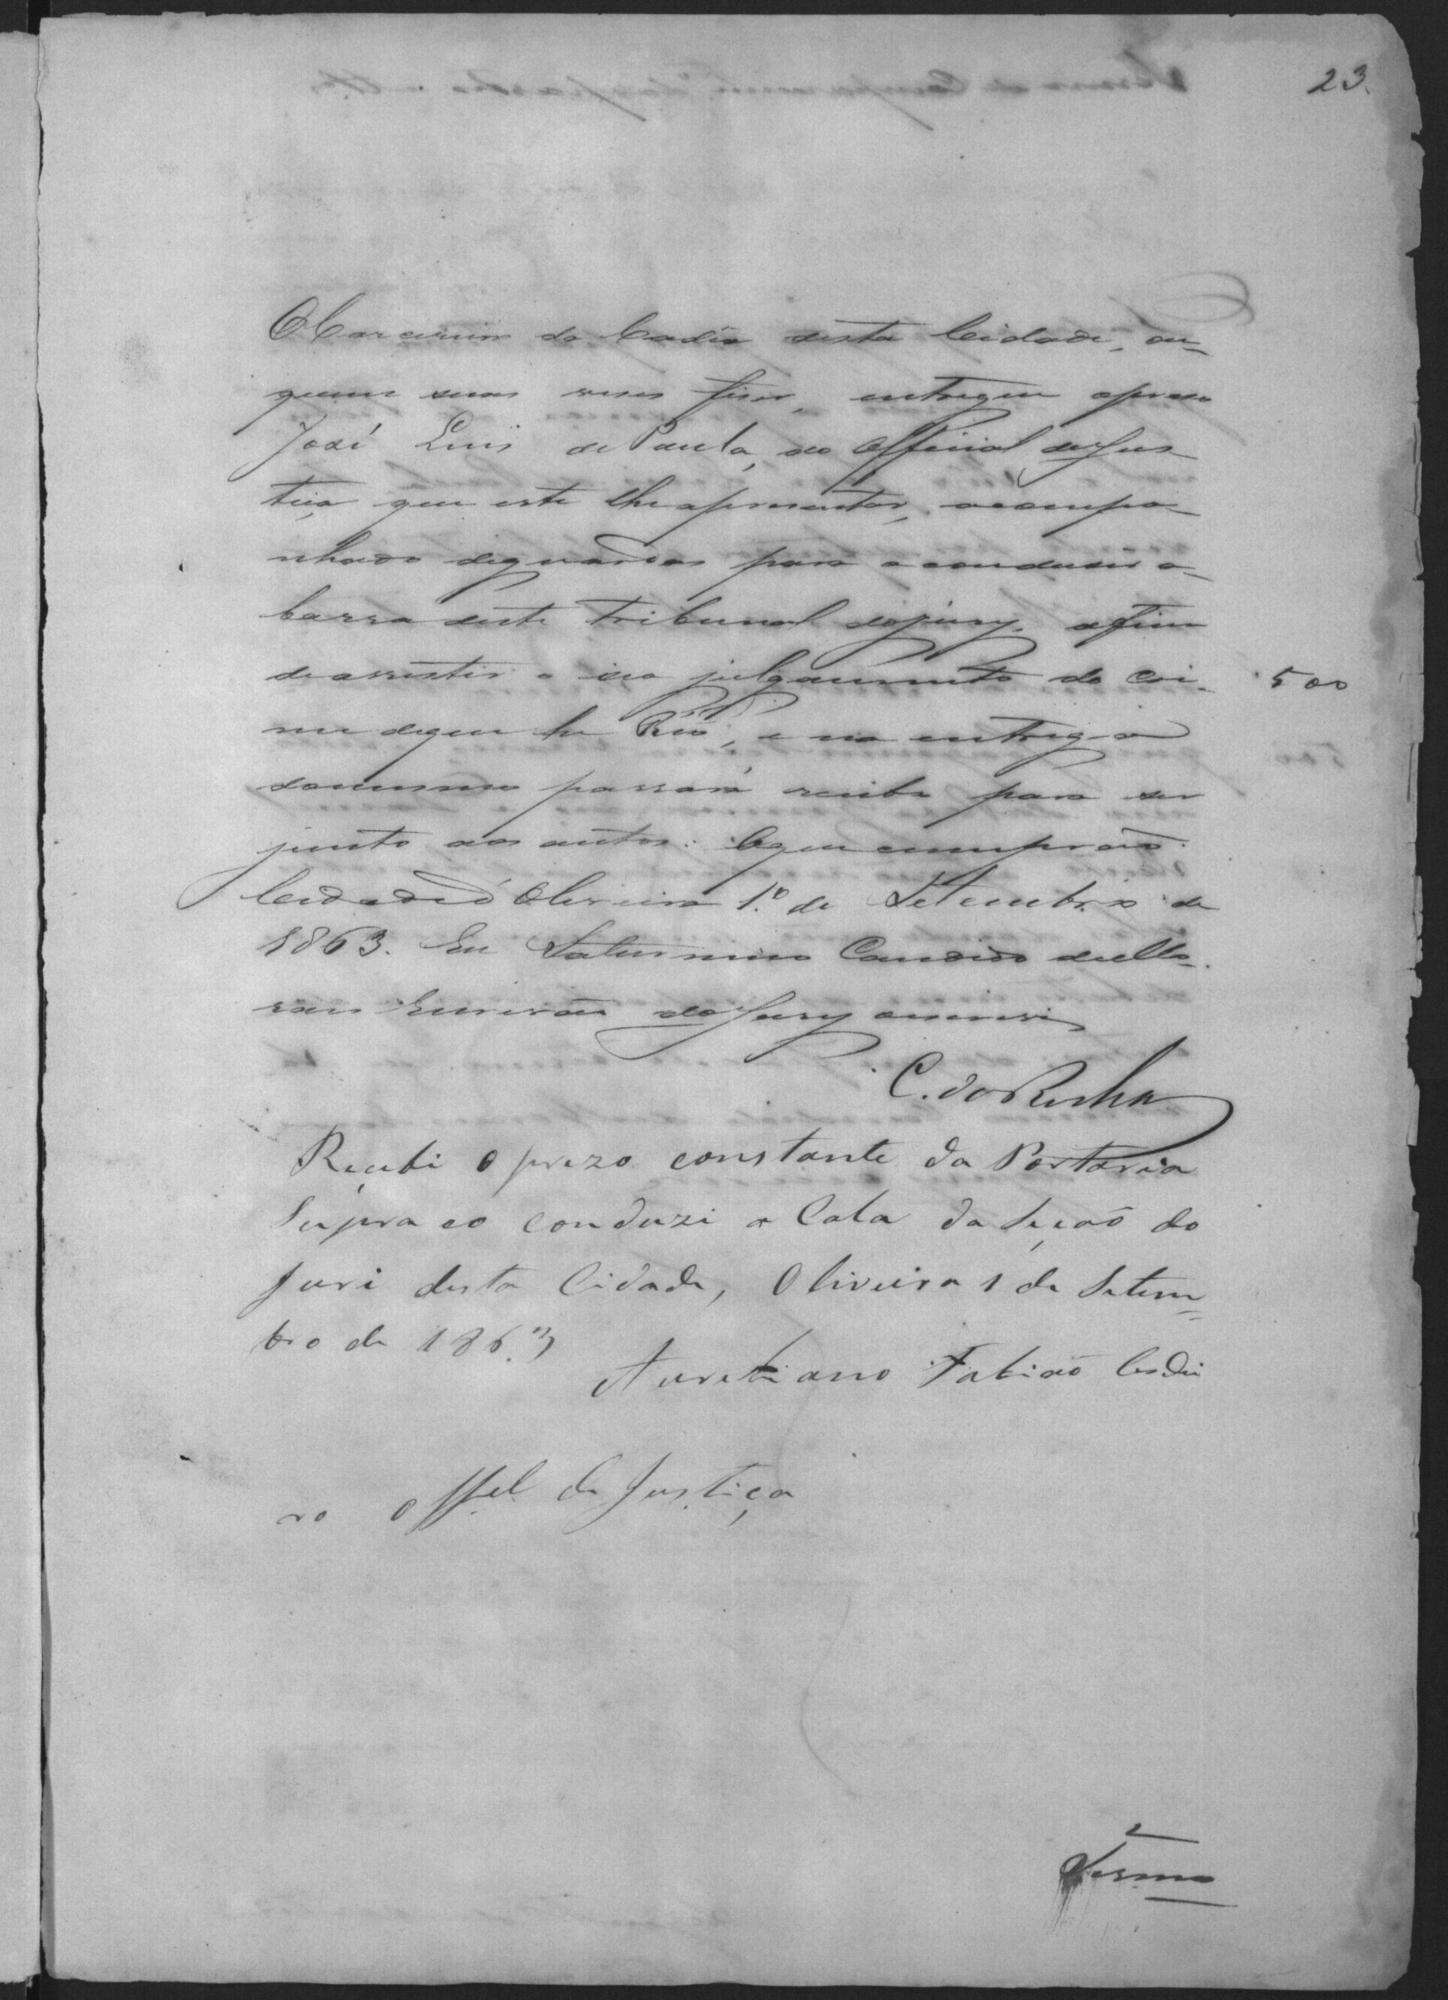 23.
O Carcereiro da Cadêa desta Cidade, ou
quem suas vezes fizer, entregue o preso
José Luis de Paula, ao Official de Jus-
tiça que este lhe apresentar, acompa-
nhado de guardas para o conduzir a
barra deste Tribunal do jury, afim
de assistir o seo julgamento do cri-
me de que he Réo, e na entrega
do mesmo passará recibo para ser
junto aos autos. O que cumprão.
Cidade d'Oliveira 1.º de Setembro de
1863. Eu Saturnino Candido de Mo-
raes Escrivão do Jury escrevi
500
C. da Rocha
Recebi o prezo constante da Portaria
Supra e o conduzi a Cala da Seção do
Juri desta Cidade, Oliveira 1 de Setem-
bro de 1863
Aureliano Fabiaõ Cordei
ro Offel. de Justiça
Termo